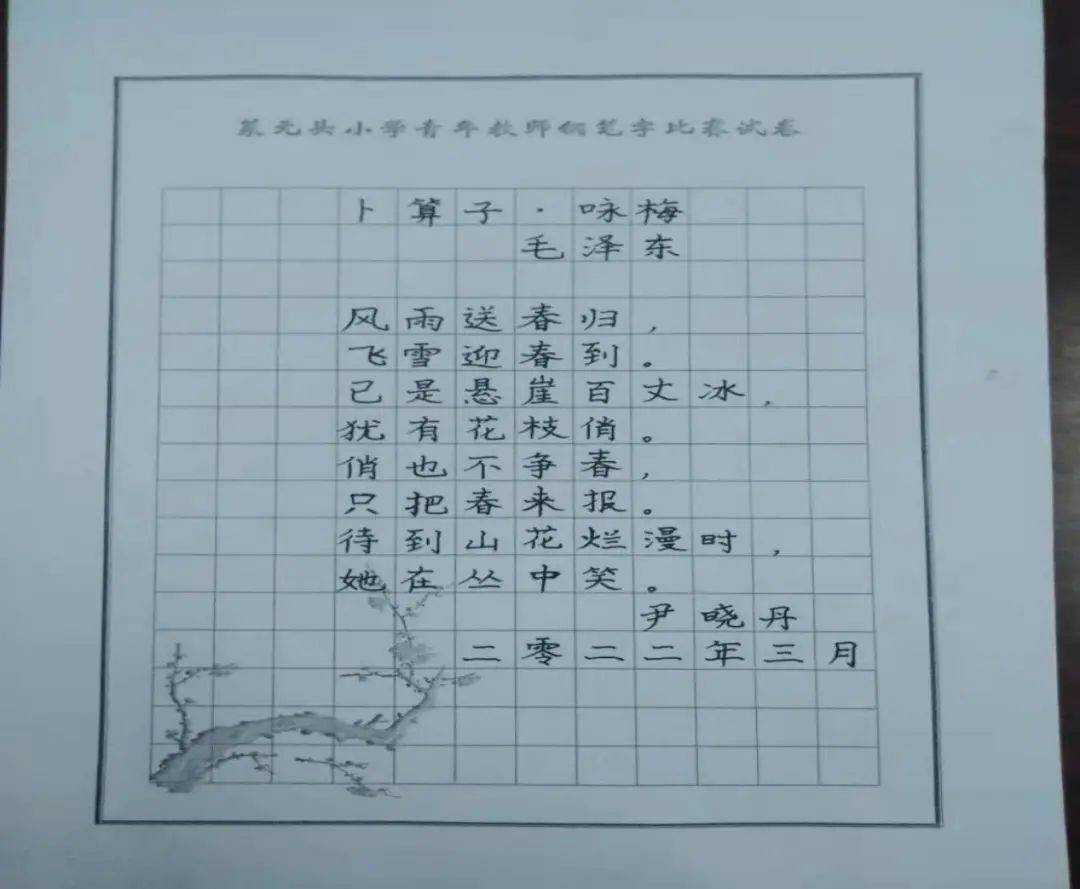 元头小学青年教师钢笔字比赛试卷
卜算子·咏梅
毛泽东
风雨送春归，
飞雪迎春到。
已是悬崖百丈冰，
犹有花枝俏。
俏也不争春，
只把春来报。
待到山花烂漫时，
她在丛中笑。
尹晓丹
二零二二年三月